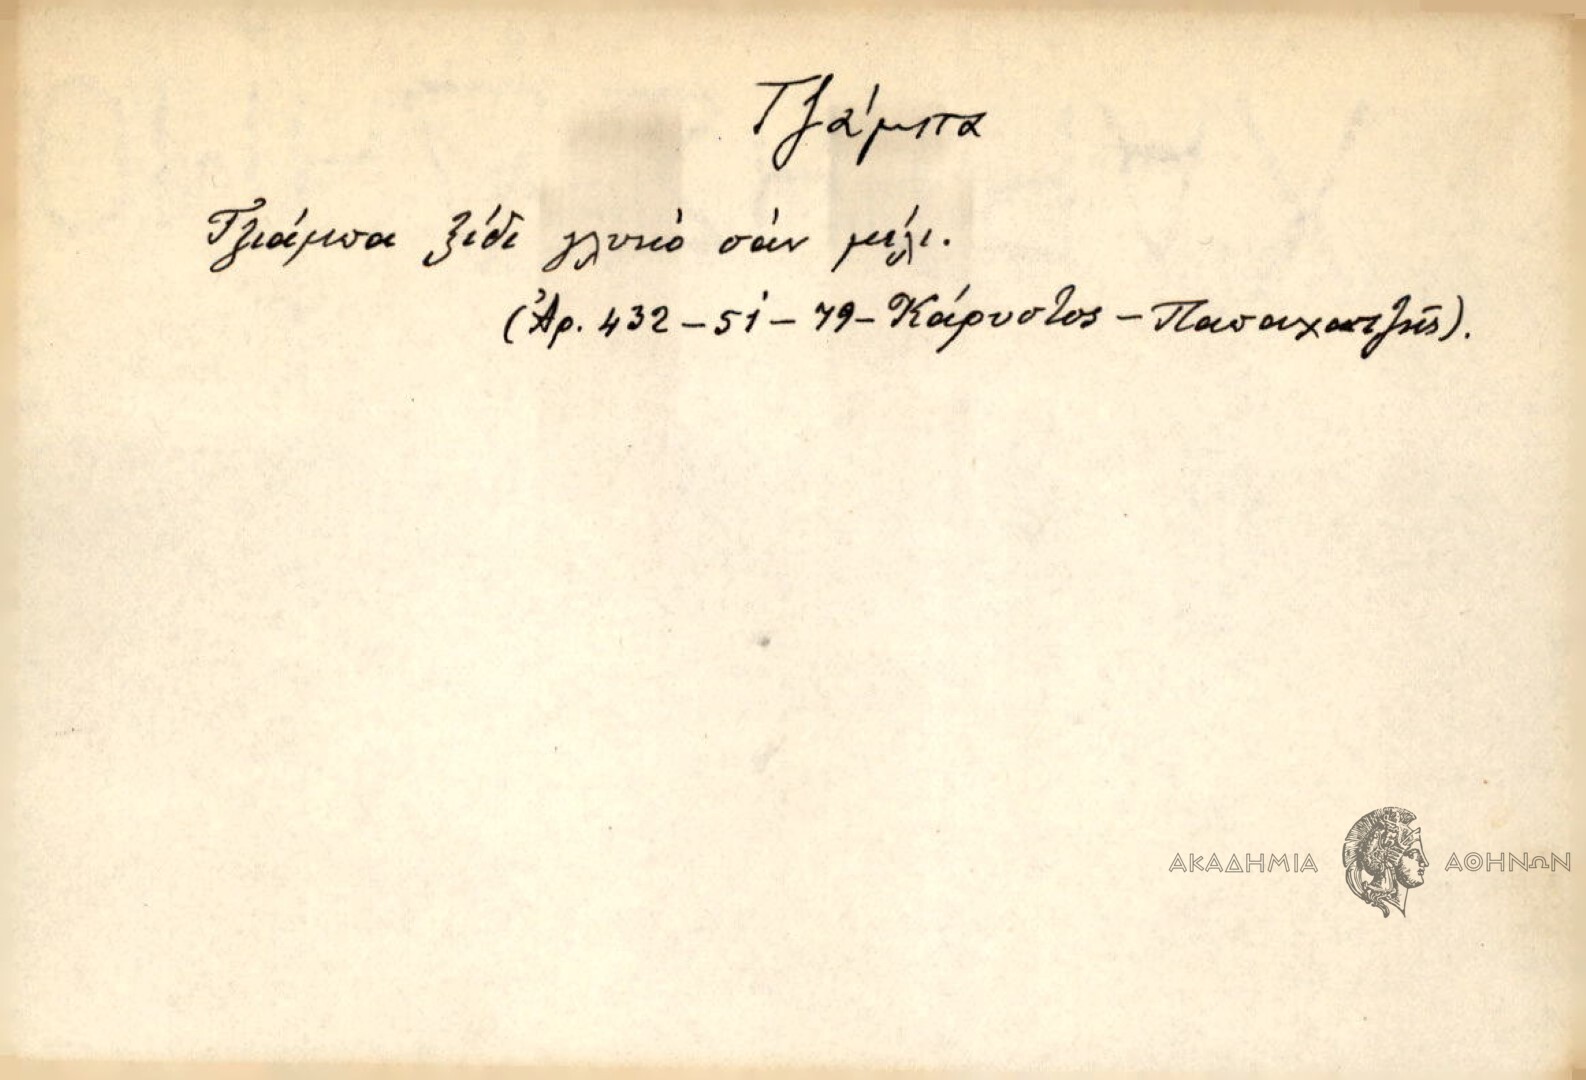 Τζάμπα
Τζιάμπα ξίδι γλυκό σάν μέλι.
(Ἀρ. 432 – 51 – 79 – Κάρυστος – Παπαχατζῆς).
ΑΚΑΔΗΜΙΑ ΑΘΗΝΩΝ